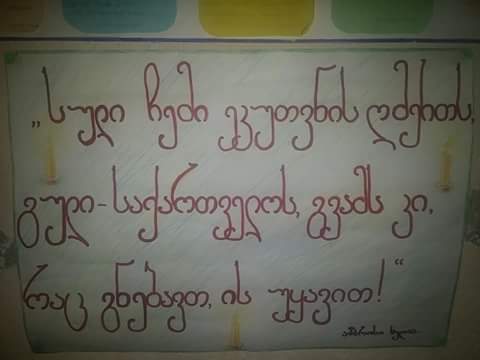 „სული ჩემი ეკუთვნის ღმერთს,
გული-საქართველოს, გვამს კი,
რაც გნებავთ, ის უყავით!“
ამბროსი ხელაია